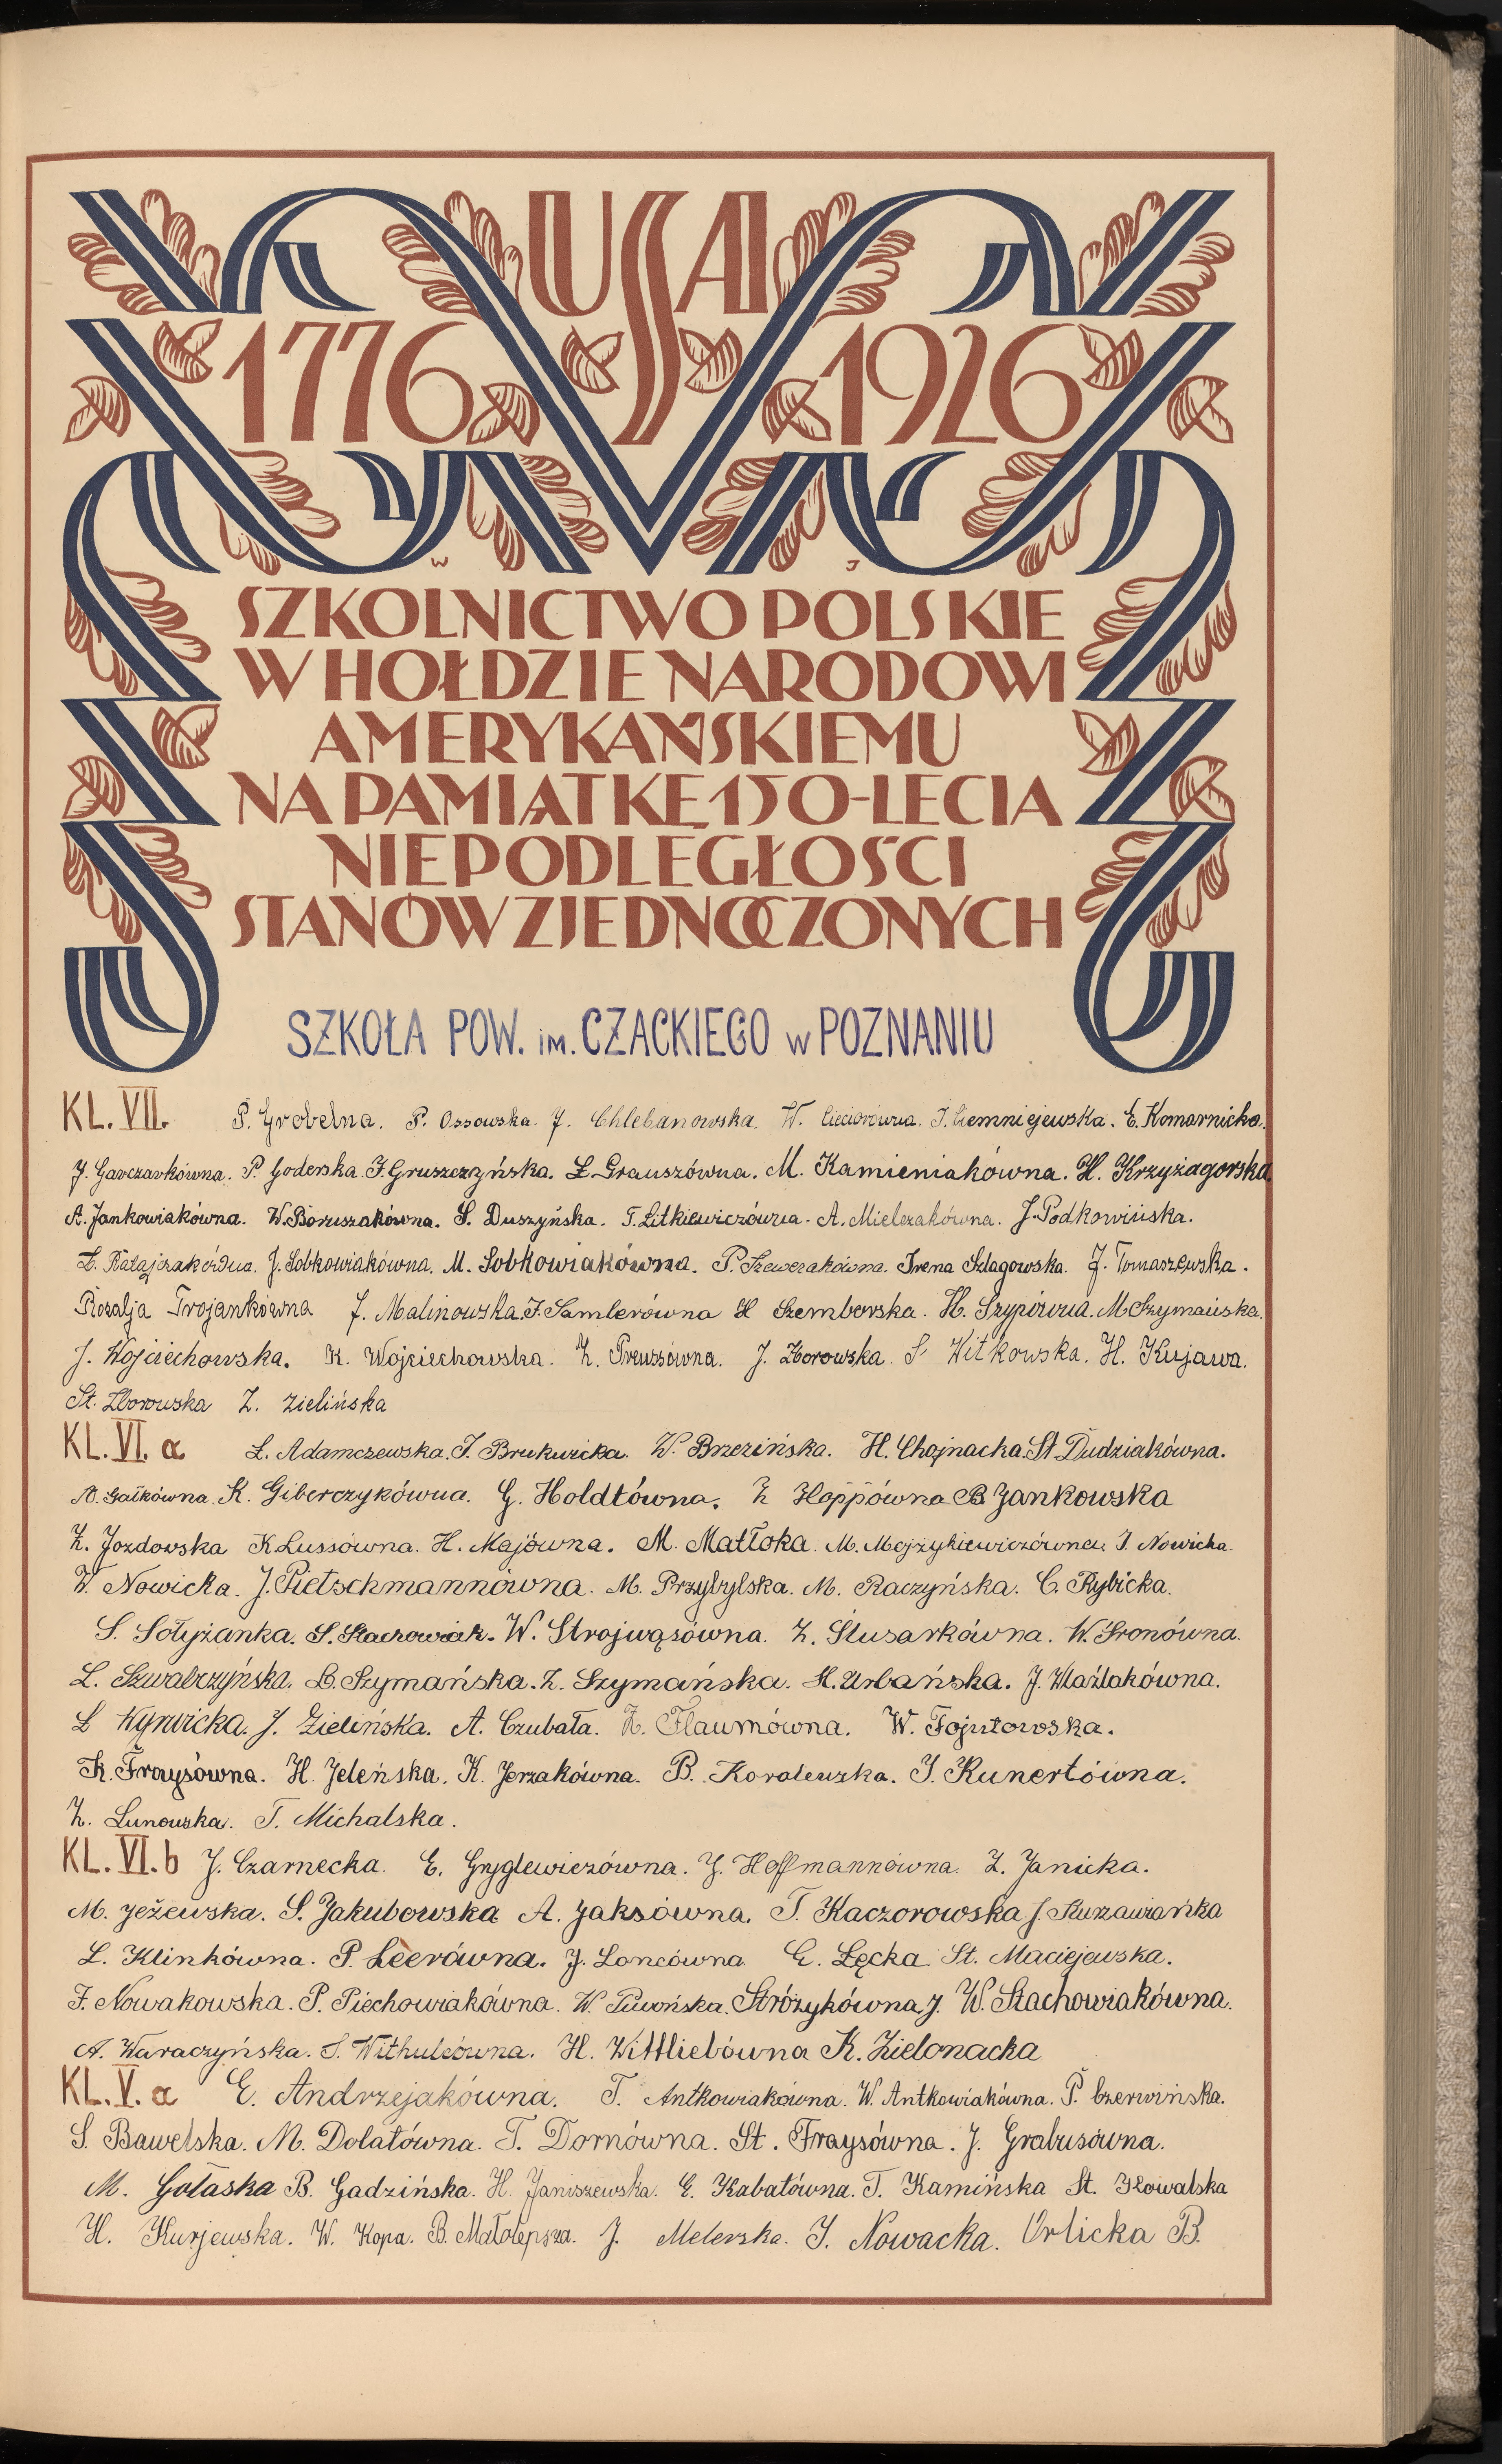 USA
1776 1926
W J
SZKOLNICTWO POLSKIE
W HOŁDZIE NARODOWI
AMERYKAŃSKIEMU
NA PAMIĄTKĘ 150-LECIA
NIEPODLEGŁOŚCI
STANÓW ZJEDNOCZONYCH
SZKOŁA POW. im. CZACKIEGO w POZNANIU
KL. VII. P. Grobelna. P. Ossowska. J. Chlebanowska W. J. Ciemniejewska. E. Komarnicka.
J. Garczarkówna. P. Goderska. J. Gruszczyńska. Ł. Grauszówna. M. Kamieniakówna. H. Krzyżagorska
A. Jankowiakówna. W. Boruszakówna. S. Duszyńska. T. Litkiewiczówna. A. Mielczakówna. J. Podkowińska.
Z. Ratajczakówna. J. Sobkowiakówna. M. Sobkowiakówna. P. Szewczakówna. Irena Szlagowska. J. Tomaszewska.
Rozalja Trojankówna J. Malinowska. J. Samlerówna H Szemborska. H. Szypówna. M. Szymańska.
J. Wojciechowska. K. Wojciechowska. Z. Preussówna. J. Zborowska. S. Witkowska. H. Kujawa.
St. Zborowska Z. Zielińska
KL. VI. a Ł. Adamczewska. J. Brukwicka. W. Brzezińska. H. Chojnacka. St. Dudziakówna.
A. Gałkówna. K. Giberczykówna. G. Holdtówna. Z Hoppówna B Jankowska
Z. Jozdowska K Lussówna. H. Majówna. M. Matłoka. M. Mojżykiewiczówna. I. Nowicka.
W. Nowicka. J. Pietschmannówna. M. Przybylska. M. Raczyńska. C. Rybicka.
S. Sołyżanka. S. Stachowiak. W. Strojwąsówna. Z. Ślusarkówna. W. Sronówna.
L. Szwabczyńska. B. Szymańska. Z. Szymańska. H. Urbańska. J. Waźlakówna.
Ł Wyrwicka. J. Zielińska. A. Czubała. K. Flaumówna. W. Fojutowska.
K. Fraysówna. H. Jeleńska. K. Jerzakówna. B. Koralewska. J. Kunertówna.
Z. Lunowska. T. Michalska.
KL. VI. b J. Czarnecka. E. Gryglewiczówna. J. Hoffmannówna. Z. Janicka.
M. Jeżewska. S. Jakubowska A. Jaksówna. T. Kaczorowska J. Kurzawianka
L. Klinkówna. P. Leerówna. J. Loncówna E. Łęcka St. Maciejewska.
J. Nowakowska. P. Piechowiakówna. W. Piwońska. Stróżykówna J. W. Stachowiakówna.
A. Waraczyńska. S. Withuleówna. H. Wittliebówna K. Zielonacka
KL. V. a E. Andrzejakówna. T. Antkowiakówna. W. Antkowiakówna. P. Czerwińska.
S. Bawelska. M. Dolatówna. T. Dornówna. St. Fraysówna. J. Grabusówna.
M. Gołaska B. Gadzińska. H. Janiszewska. E. Kabatówna. T. Kamińska St. Kowalska
H. Kurjewska. W. Kopa. B. Małolepsza. J. Melerska. J. Nowacka. Orlicka B.